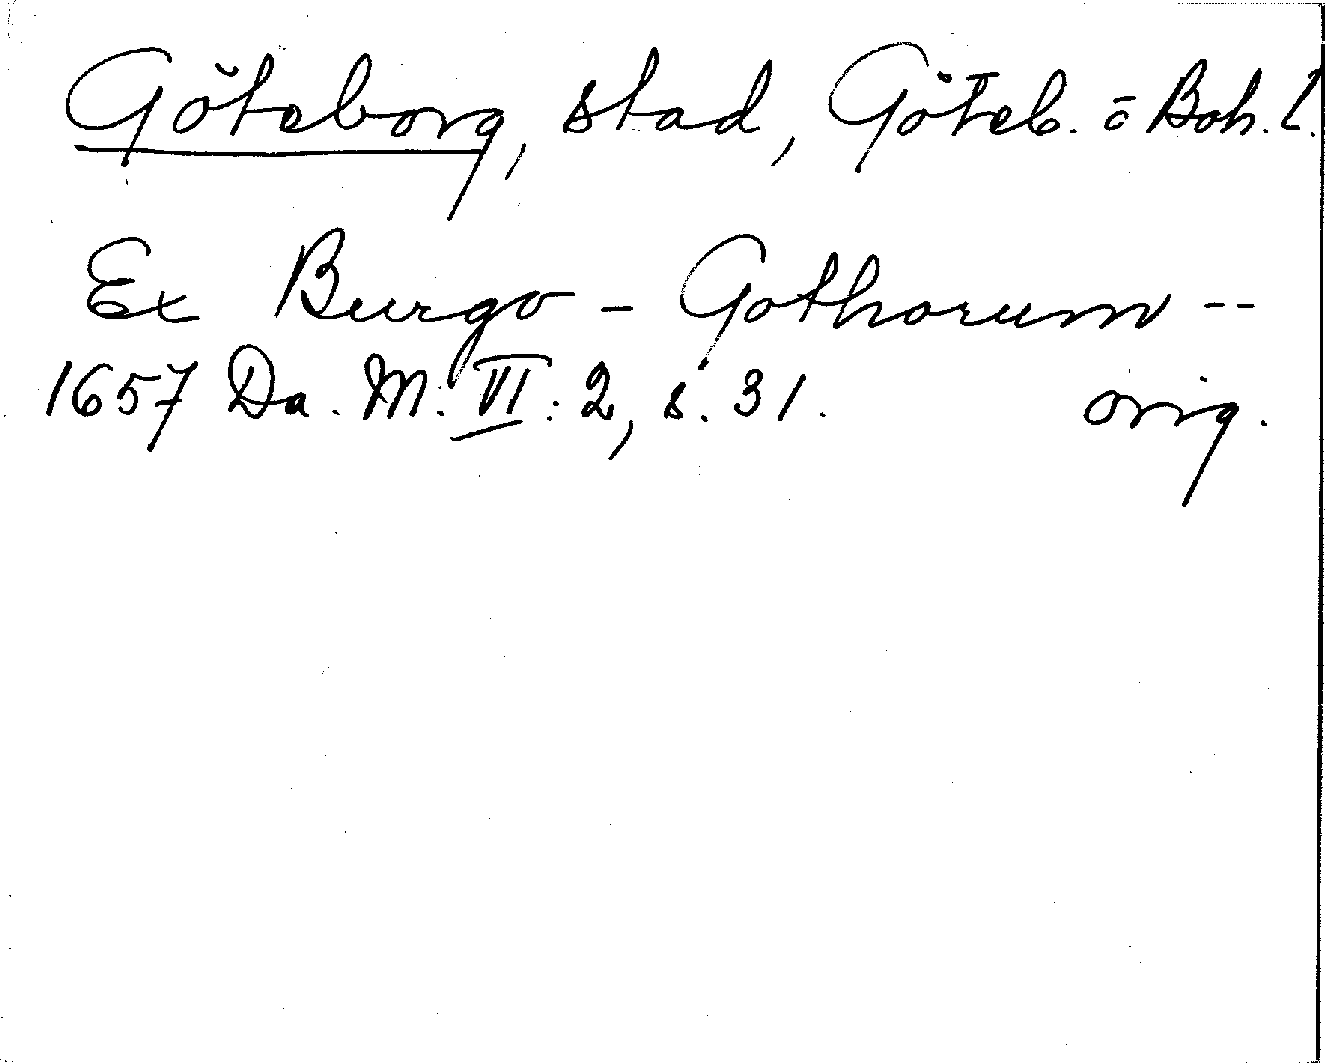 Göteborg, stad, Göteb. o Boh. l.
Ex Burgo - Gothorum --
1657 Da. M. VI: 2, s. 31. orig.